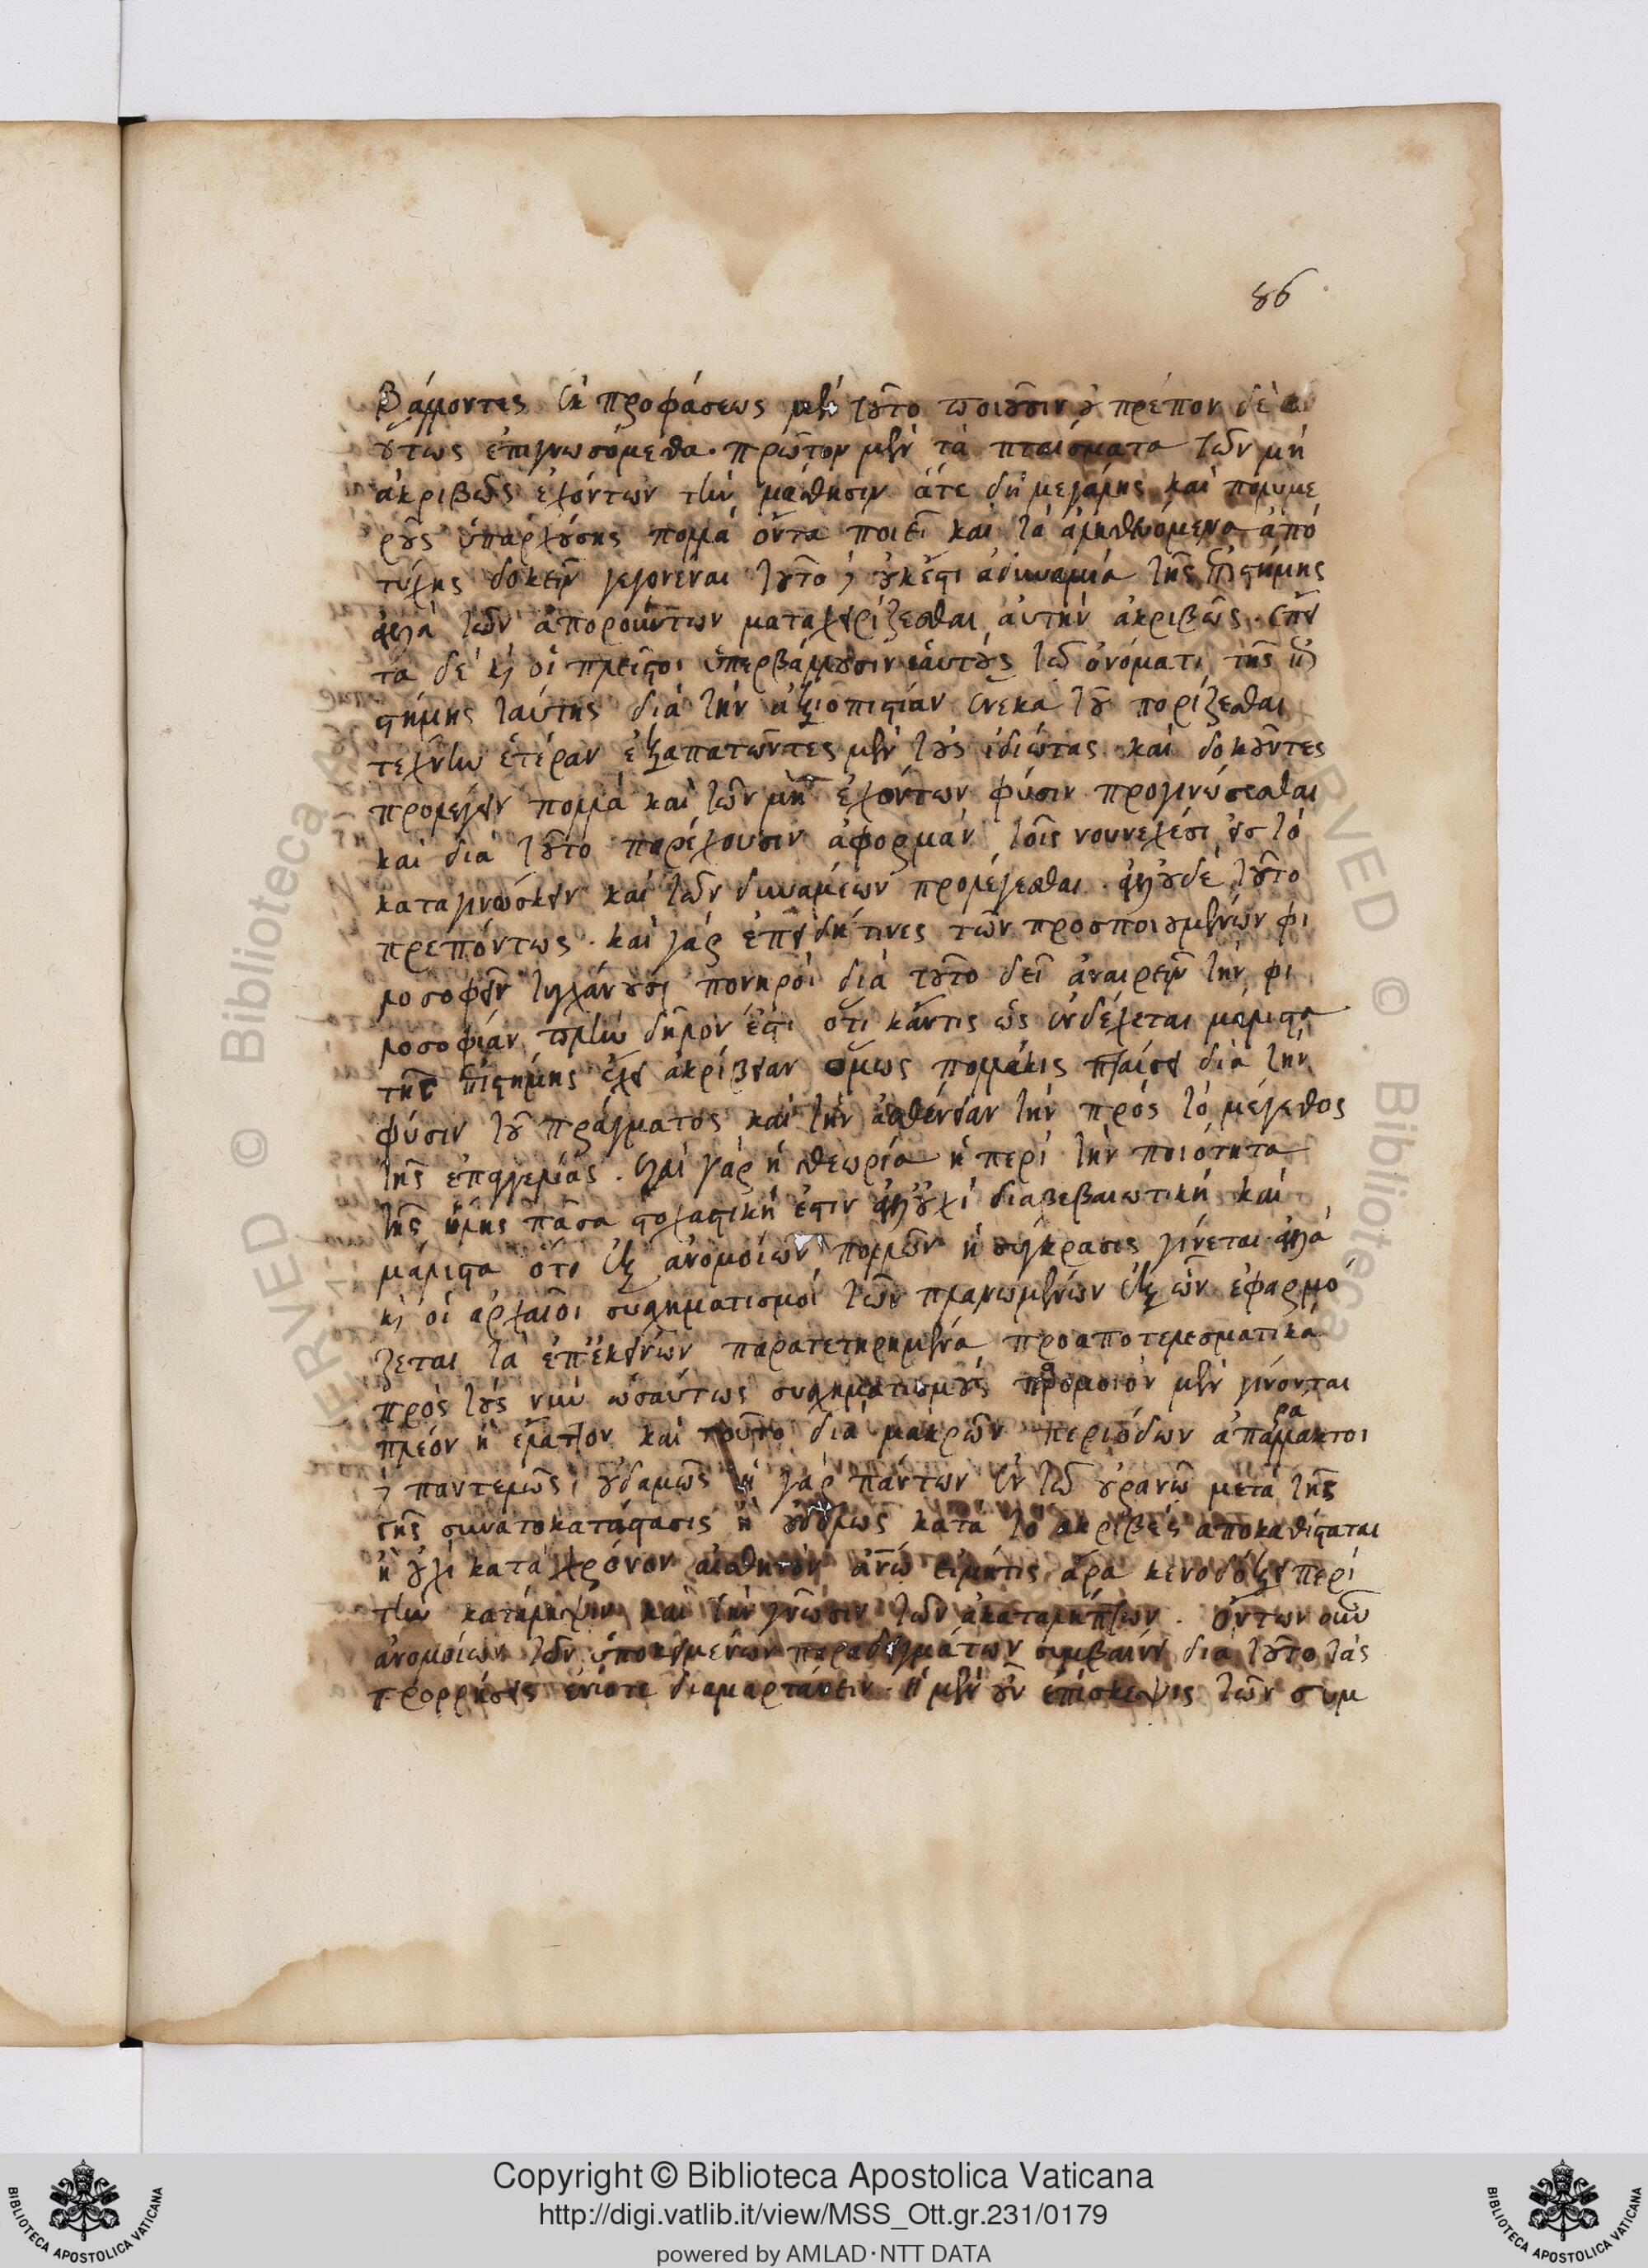 86
βάλλοντες ἐκ προφάσεως μὲν τοῦτο ποιοῦσιν οὐ πρέπον δὲ
οὕτως ἐπιγνωσόμεθα. πρῶτον μὲν τὰ πταίσματα τῶν μὴ
ἀκριβῶς ἐχόντων τὴν μάθησιν ἅτε δὴ μεγάλης καὶ πολυμε
ροῦς ὑπαρχούσης πολλὰ ὄντα ποιεῖ καὶ τὰ ἀληθευόμενα ἀπὸ
τύχης δοκεῖν γεγονέναι τοῦτο δ' οὐκ ἔστι ἀδυναμία τῆς ἐπιστήμης
ἀλλὰ τῶν ἀπορούντων μεταχειρίζεσθαι αὐτὴν ἀκριβῶς. ἔπει
τα δὲ καὶ οἱ πλεῖστοι ὑπερβάλλουσιν ἑαυτοὺς τῷ ὀνόματι τῆς ἐπι
στήμης ταύτης διὰ τὴν ἀξιοπιστίαν ἕνεκα τοῦ πορίζεσθαι
τέχνην ἑτέραν ἐξαπατῶντες μὲν τοὺς ἰδιώτας καὶ δοκοῦντες
προλέγειν πολλὰ καὶ τῶν μὴ ἐχόντων φύσιν προγινώσεσθαι
καὶ διὰ τοῦτο παρέχουσιν ἀφορμὰν τοῖς νουνεχέσι εἰς τὸ
καταγινώσκειν καὶ τῶν δυναμένων προλέγεσθαι. ἀλλ' οὐδὲ τοῦτο
πρεπόντως. καὶ γὰρ ἐπειδή τινες τῶν προσποιουμένων φι
λοσοφεῖν τυγχάνουσι πονηροὶ διὰ τοῦτο δεῖ ἀναιρεῖν τὴν φι
λοσοφίαν πλὴν δῆλον ἐστι ὅτι κἄν τις ὡς ἐνδέχεται μάλιστα
τῆς ἐπιστήμης ἔχει ἀκρίβειαν ὅμως πολλάκις πταίσει διὰ τὴν
φύσιν τοῦ πράγματος καὶ τὴν ἀσθένειαν τὴν πρὸς τὸ μέγεθος
τῆς ἐπαγγελίας. καὶ γὰρ ἡ θεωρία ἡ περὶ τὴν ποιότητα
τῆς ὕλης πᾶσα στοχαστική ἐστιν ἀλλ' οὐχὶ διαβεβαιωτικὴ καὶ
μάλιστα ὅτε ἐξ ἀνομοίων πολλῶν ἡ σύγκρασις γίνεται ἀλλὰ
καὶ οἱ ἀρχαῖοι συσχηματισμοὶ τῶν πλανωμένων ἐξ ὧν ἐφαρμό
ζεται τὰ ἐπ' ἐκείνων παρατετηρημένα προαποτελεσματικὰ
πρὸς τοὺς νῦν ὡσαύτως συσχηματισμοὺς παρόμοιοι μὲν γίνονται
πλέον ἢ ἔλαττον καὶ τοῦτο διὰ μακρῶν περιόδων ἀπαράλλακτοι
δ' παντελῶς οὐδαμῶς ἡ γὰρ πάντων ἐν τῷ οὐρανῷ μετὰ τῆς
γῆς συναποκατάστασις ἢ οὐδόλως κατὰ τὸ ἀκριβὲς ἀποκαθίσταται
ἢ οὐχὶ κατὰ χρόνον αἰσθητὸν ἀνῷ εἰ μή τις ἄρα κενοδόξει περὶ
τὴν κατάληψιν καὶ τὴν γνῶσιν τῶν ἀκαταλήπτων. ὄντων οὖν
ἀνομοίων τῶν ὑποκειμένων παραδειγμάτων συμβαίνει διὰ τοῦτο τὰς
προρρήσεις ἐνίοτε διαμαρτάνειν. ἡ μὲν οὖν ἐπίσκεψις τῶν συμ
Copyright © Biblioteca Apostolica Vaticana
http://digi.vatlib.it/view/MSS_Ott.gr.231/0179
powered by AMLAD·NTT DATA